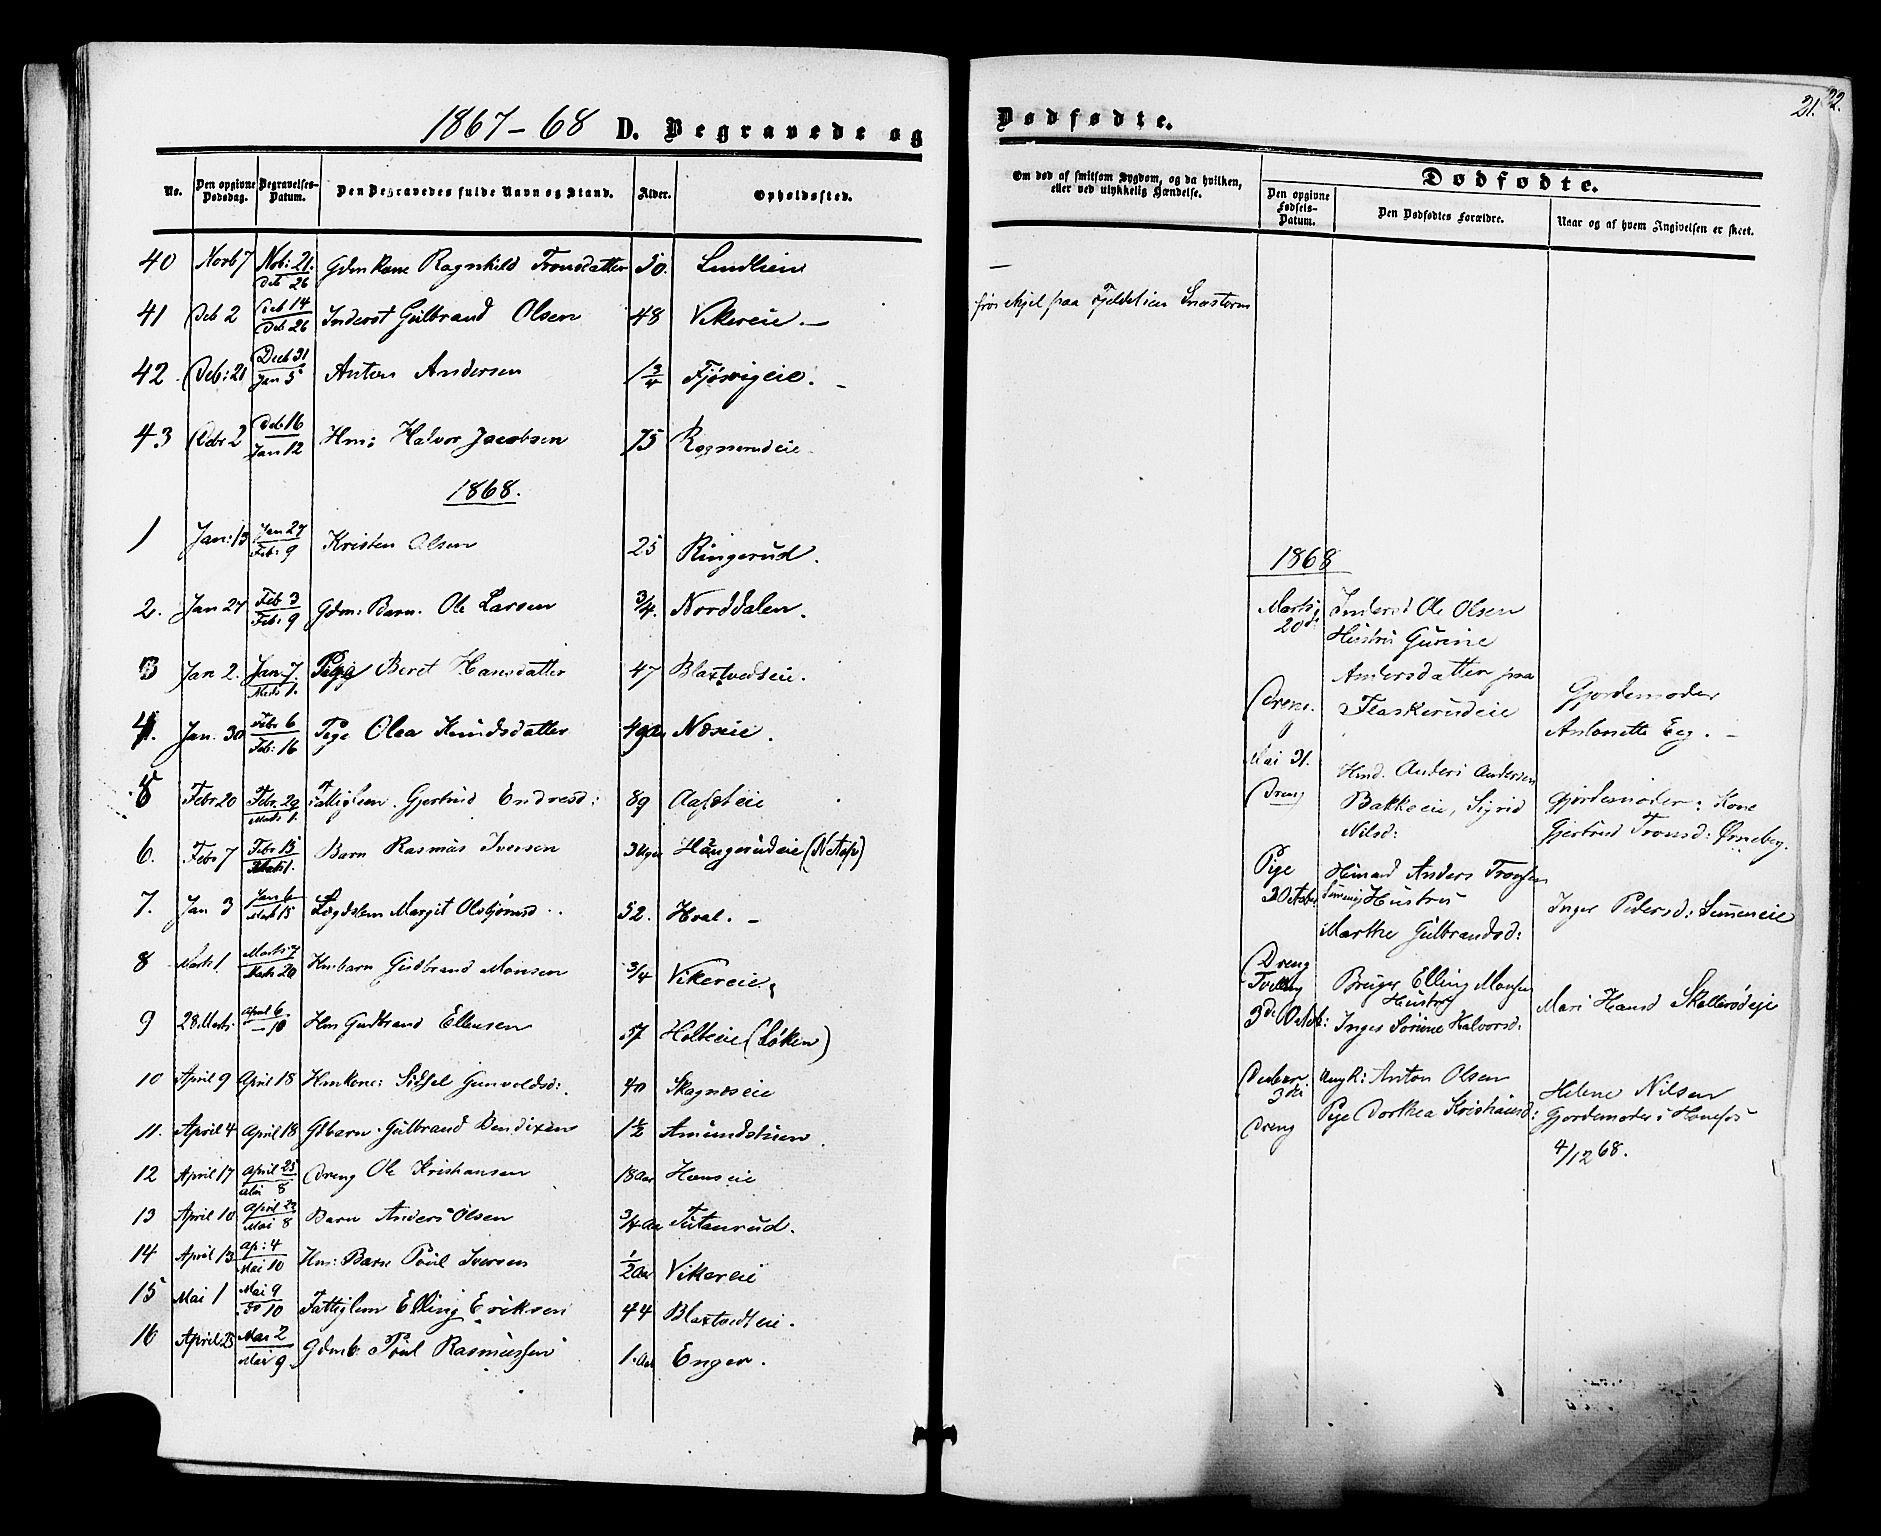 1867-68 D. Begravede og
No. Den opgivne Dødsdag. Begravelses-Datum. Den Begravedes fulde Navn og Stand. Alder. Opholdssted.
40 Novb 7 Nob: 21. Deb 26 Gdm Kone Ragnhild Tronsdatter 50. Lundlien
41 Deb 2 Deb 14 Deb 26 Inderst Gulbrand Olsen 48 Vikereie. —
42 Deb: 21 Decb 31 Jan 5 Anton Andersen 1 3/4 Fjösvigeie. —
43 Debr 2 Deb 16 Jan 12 Hm: Halvor Jacobsen 75 Rognerudeie
1868.
1 Jan: 13 Jan 27 Feb: 9 Kristen Olsen 25 Ringerud.
2. Jan 27 Feb 3 Feb: 9 Gdm: Barn. Ole Larsen 3/4. Norddalen.
3 Jan 2. Jan 7. Marts 1. Pige Beret Hansdatter 47 Blaxtvedseie.
4. Jan. 30 Febr 6 Feb: 16 Pige Olea Knudsdatter 4 Næseie.
5 Febr 20 Febr. 29 Marts 1. Fattiglem. Gjertrud Endresd: 89
6. Febr 7 Febr 15 Marts 1. Barn Rasmus Iversen 3 Uger Haugerudeie
7. Jan 3 Jan 6 Mart 15 Lægdslem Margit 52. Hval. —
8 Marts 1 Marts 7 Marts 20 Hmbarn Gudbrand Monsen 3/4 Vikereie.
9 28 Marts April 6. — 10 Hm Gudbrand Ellensen 57 Holteie (Løken)
10 April 9 April 18 Hmkone: Sidsel Gunvoldsd: 40 Skagnæseie
11. April 4 April 18 Gdbarn. Gulbrand Bendixen 1 1/2 Amundslien.
12 April 17 April 25 Mai 8 Dreng Ole Kristiansen 18 Aar Honseie
13 April 10 April 23 Mai 8 Barn Anders Olsen 3/4 Aar
14 April 13 Ap: 4 Mai 10 Hm: Barn Poul Iversen 1/2 Aar Vikereie
15 Mai 1 Mai 9 do 10 Fattiglem Elling Eriksen 44 Blaxtvedteie.
16 April 25 Mai 2 Mai 9. Gdmb. Poul Rasmussen 1. Aar Enger.
Dødfødte.
21. 22.
Om død af smitsom Sygdom, og da hvilken, eller ved ulykkelig Hændelse.
Dødfødte.
Den opgivne Fødsels-Datum. Den Dødfødtes Forældre. Naar og af hvem Angivelsen er skeet.
—
frøs ihjel paa Fjeldet i en Snestorm
1868
Marts 20de Inderst Ole Olsen
Hustru Gurine
Andersdatter paa
Dreng. Flaskerudeie Gjordemoder
Antonette Eeg. —
Mai 31. Hmd. Anders Andersen
Dreng Bakkeeie, Sigrid Gjordemoder: Kone
Nilsd: Gjertrud Tronsd: Ørneberg.
Pige Husmand Anders Tronsen
3 October Hustru Inger Pedersd:
Marthe Gulbrandsd:
Dreng
Tvilling Bruger Elling Monsen
Hustru Mari Hansd
3de Octob: Inger Sørine Halvorsd:
Decbr. 3die Ungk: Anton Olsen Helene Nilsen
Pige Dorthea Kristiansd: Gjordemoder i Hønefos
Dreng
4/12 68.